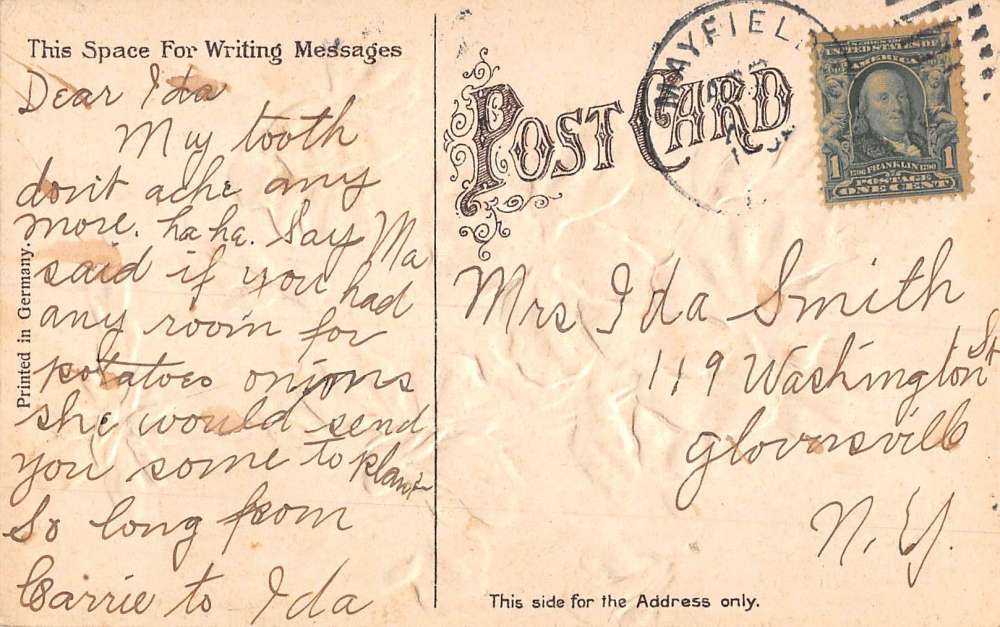 This Space For Writing Messages
Dear Ida
My tooth
don't ache any
more. ha ha. Say Ma
said if you had
any room for
potatoes onions
she would send
you some to plant
So long from
Carrie to Ida
Printed in Germany.
POST CARD
MAYFIEL
SERIES OF 1902
UNITED STATES OF
AMERICA
1706 FRANKLIN 1790
1 1
POSTAGE
ONE CENT
Mrs Ida Smith
119 Washington St
Gloversville
N.Y.
This side for the Address only.